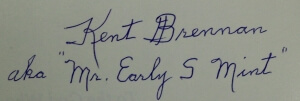 Kent Brennan
aka "Mr. Early S Mint"